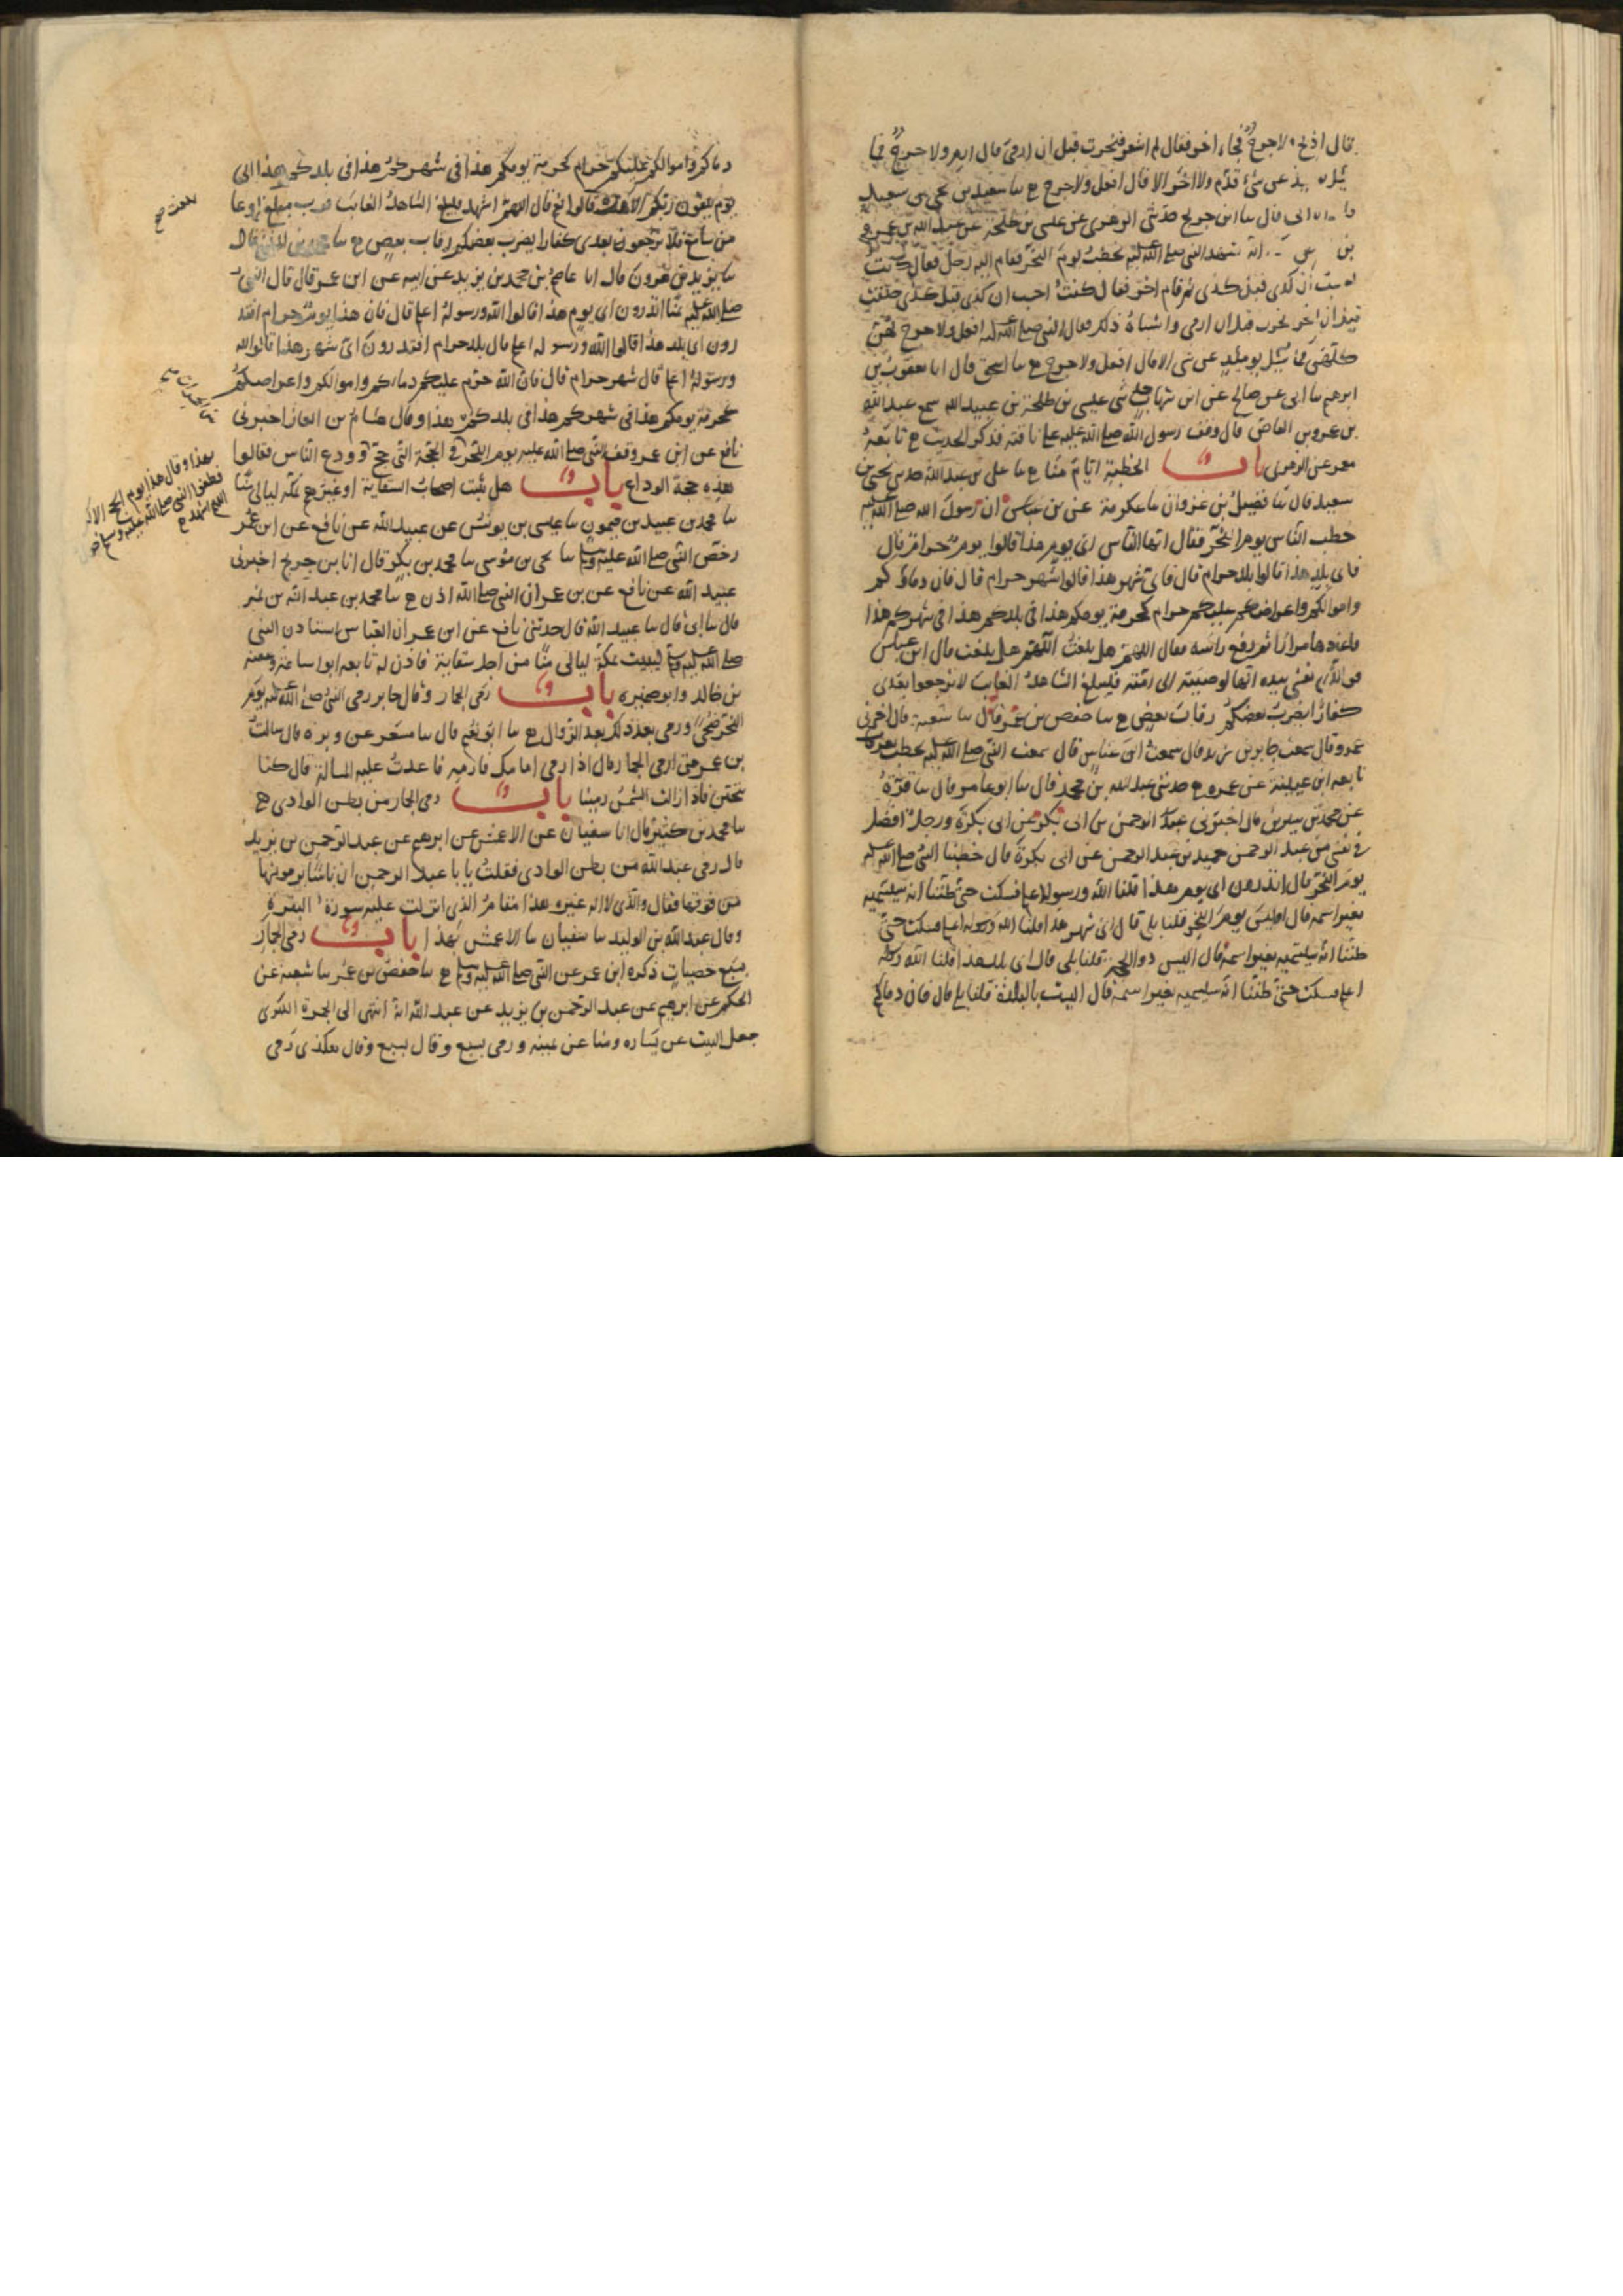 قال اذبح ولا حرج فجاء اخر فقال لم اشعر فنحرت قبل ان ارمي قال ارم ولا حرج فما
سئل عن شئ قدم ولا اخر الا قال افعل ولا حرج ح سا سعيد بن يحيى بن سعيد
ابى قال سا ابن جريج حدثنى الزهرى عن عيسى بن طلحة عن عبد الله بن عمرو
بن انه شهد النبى صلى الله عليه يخطب يوم النحر فقام اليه رجل فقال كنت
ان كذى قبل كذى ثم قام اخر فقال كنت احسب ان كذى قبل كذى حلقت
قبل ان انحر نحرت قبل ان ارمى واشباه ذلك فقال النبى صلى الله عليه افعل ولا حرج لهن
كلهن فما سئل يومئذ عن شى الا قال افعل ولا حرج ح سا اسحق قال انا يعقوب بن
ابرهيم سا ابى عن صالح عن ابن شهاب حدثنى عيسى بن طلحة بن عبيد الله سمع عبد الله
بن عمرو بن العاص قال وقف رسول الله صلى الله عليه على ناقته فذكر الحديث ح تابعه
معمر عن الزهرى باب الخطبة ايام منا ح سا على بن عبد الله حدثنى يحيى بن
سعيد قال سا فضيل بن غزوان سا عكرمة عن بن عباس ان رسول الله صلى الله عليه
خطب الناس يوم النحر فقال ايها الناس اى يوم هذا قالوا يوم حرام قال
فاى بلد هذا قالوا بلد حرام قال فاى شهر هذا قالوا شهر حرام قال فان دماؤكم
واموالكم واعراضكم عليكم حرام كحرمة يومكم هذا فى بلدكم هذا فى شهركم هذا
فاعادها مرارا ثم رفع راسه فقال اللهم هل بلغت اللهم هل بلغت قال ابن عباس
فوالذى نفسى بيده انها لوصيته الى امته فليبلغ الشاهد الغايب لا ترجعوا بعدى
كفارا يضرب بعضكم رقاب بعض ح سا حفص بن عمر قال سا شعبة قال اخبرنى
عمرو قال سمعت جابر بن زيد قال سمعت ابن عباس قال سمعت النبى صلى الله عليه يخطب بعرفات
تابعه ابن عيينة عن عمرو ح حدثنى عبد الله بن محمد قال سا ابو عامر قال سا قرة
عن محمد بن سيرين قال اخبرنى عبد الرحمن بن ابى بكرة عن ابى بكرة ورجل افضل
فى نفسى من عبد الرحمن حميد بن عبد الرحمن عن ابى بكرة قال خطبنا النبى صلى الله عليه
يوم النحر قال اتدرون اى يوم هذا قلنا الله ورسوله اعلم فسكت حتى ظننا انه سيسميه
بغير اسمه قال اليس يوم النحر قلنا بلى قال اى شهر هذا قلنا الله ورسوله اعلم فسكت حتى
ظننا انه سيسميه بغير اسمه قال اليس ذو الحجة قلنا بلى قال اى بلد هذا قلنا الله ورسوله
اعلم فسكت حتى ظننا انه سيسميه بغير اسمه قال اليست بالبلدة قلنا بلى قال فان دماكم
دماكم واموالكم عليكم حرام كحرمة يومكم هذا فى شهركم هذا فى بلدكم هذا الى
يوم تلقون ربكم الا هل قالوا نعم قال اللهم اشهد فليبلغ الشاهد الغايب فرب مبلغ اوعا
من سامع فلا ترجعون بعدى كفارا يضرب بعضكم رقاب بعض ح سا محمد بن المثنى قال
سا يزيد بن هرون قال انا عاصم بن محمد بن يزيد عن ابيه عن ابن عمر قال قال النبى
صلى الله عليه بمنا اتدرون اى يوم هذا قالوا الله ورسوله اعلم قال فان هذا يوم حرام افتد
رون اى بلد هذا قالوا الله ورسوله اعلم قال بلد حرام افتدرون اى شهر هذا قالوا الله
ورسوله اعلم قال شهر حرام قال فان الله حرم عليكم دماءكم واموالكم واعراضكم
كحرمة يومكم هذا فى شهركم هذا فى بلدكم هذا وقال هشام بن الغاز اخبرنى
نافع عن ابن عمر وقف النبى صلى الله عليه يوم النحر فى الحجة التى حج وودع الناس فقالوا
هذه حجة الوداع باب هل يبيت اصحاب السقاية او غيرهم بمكة ليالى منا
سا محمد بن عبيد بن ميمون سا عيسى بن يونس عن عبيد الله عن نافع عن ابن عمر
رخص النبى صلى الله عليه وسلم سا يحيى بن موسى سا محمد بن بكر قال انا بن جريج اخبرنى
عبيد الله عن نافع عن بن عمر ان النبى صلى الله اذن ح سا محمد بن عبد الله بن نمير
قال سا ابى قال سا عبيد الله قال حدثنى نافع عن ابن عمر ان العباس استاذن النبى
صلى الله عليه وسلم ليبيت بمكة ليالى منا من اجل سقاية فاذن له تابعه ابو اسامة وعقبة
بن خالد وابو ضمرة باب رمى الجمار وقال جابر رمى النبى صلى الله عليه يوم
النحر ضحى ورمى بعد ذلك بعد الزوال ح سا ابو نعيم قال سا مسعر عن وبرة قال سالت
بن عمر متى ارمى الجمار قال اذا رمى امامك فارمه فاعدت عليه المسالة قال كنا
نتحين فاذا زالت الشمس رمينا باب رمى الجمار من بطن الوادى ح
سا محمد بن كثير قال انا سفيان عن الاعمش عن ابرهيم عن عبد الرحمن بن يزيد
قال رمى عبد الله من بطن الوادى فقلت يا با عبد الرحمن ان ناسا يرمونها
من فوقها فقال والذى لا اله غيره هذا مقام الذى انزلت عليه سورة البقرة
وقال عبد الله بن الوليد سا سفيان سا الاعمش بهذا باب رمى الجمار
بسبع حصيات ذكره ابن عمر عن النبى صلى الله عليه وسلم ح سا حفص بن عمر سا شعبة عن
الحكم عن ابرهيم عن عبد الرحمن بن يزيد عن عبد الله انه انتهى الى الجمرة الكبرى
جعل البيت عن يساره ومنا عن يمينه ورمى بسبع وقال بسبع وقال هكذى رمى
بلغت صح
بهذا وقال هذا يوم الحج الاكبر
فطفق النبى صلى الله عليه وسلم
اللهم اشهد ح